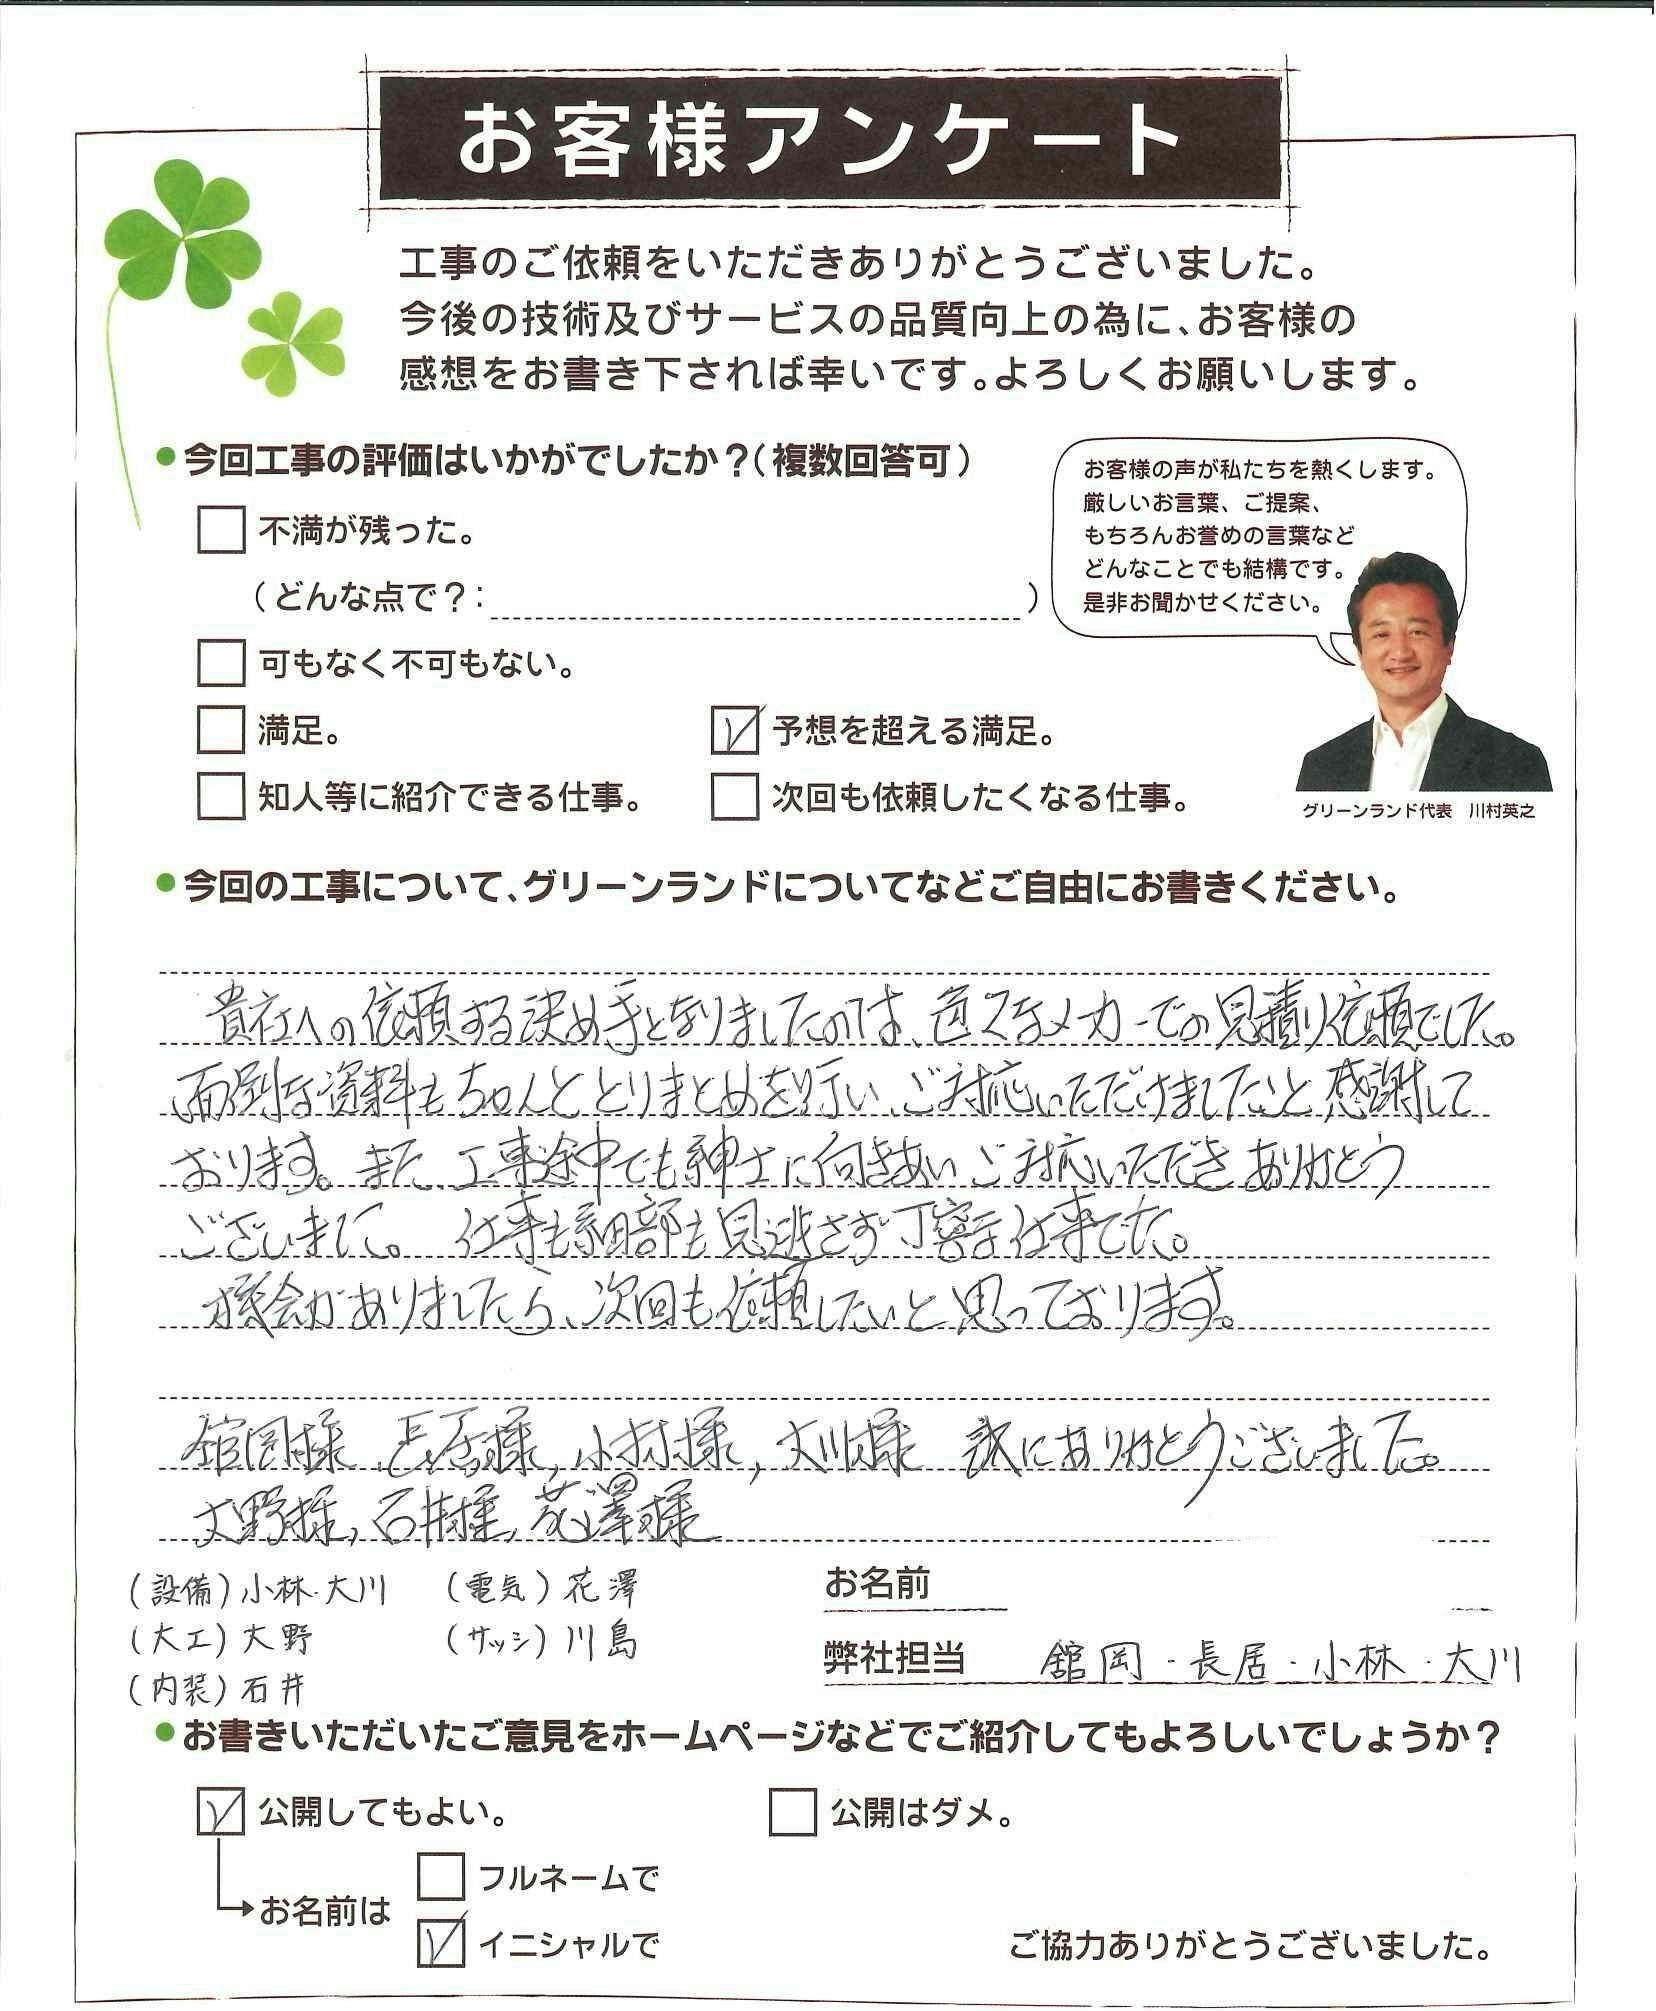 お客様アンケート
工事のご依頼をいただきありがとうございました。
今後の技術及びサービスの品質向上の為に、お客様の
感想をお書き下されば幸いです。よろしくお願いします。
●今回工事の評価はいかがでしたか？（複数回答可）
不満が残った。
（どんな点で？：　）
可もなく不可もない。
満足。
予想を超える満足。
知人等に紹介できる仕事。
次回も依頼したくなる仕事。
お客様の声が私たちを熱くします。
厳しいお言葉、ご提案、
もちろんお誉めの言葉など
どんなことでも結構です。
是非お聞かせください。
グリーンランド代表　川村英之
●今回の工事について、グリーンランドについてなどご自由にお書きください。
貴社への依頼する決め手となりましたのは、色々なメーカーでの見積り依頼でした。
面倒な資料もちゃんととりまとめを行い、ご対応いただけましたこと感謝して
おります。また、工事途中でも紳士に向きあいご対応いただきありがとう
ございました。仕事も細部も見逃さず丁寧な仕事でした。
機会がありましたら、次回も依頼したいと思っております。
舘岡様、長居様、小林様、大川様　誠にありがとうございました。
大野様、石井様、花澤様
（設備）小林・大川　（電気）花澤
（大工）大野　（サッシ）川島
（内装）石井
お名前
弊社担当　舘岡・長居・小林・大川
●お書きいただいたご意見をホームページなどでご紹介してもよろしいでしょうか？
公開してもよい。
公開はダメ。
お名前は
フルネームで
イニシャルで
ご協力ありがとうございました。